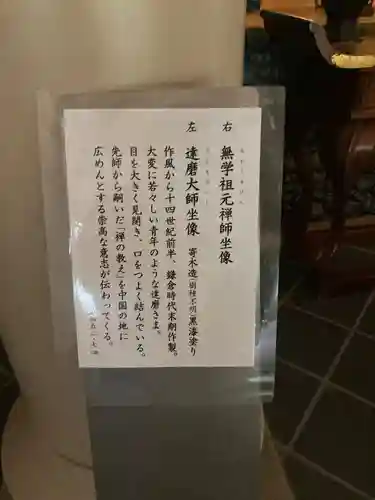 右 無学祖元禅師坐像
左 達磨大師坐像 寄木造(樹種不明)黒漆塗り
作風から十四世紀前半、鎌倉時代末期作製。
大変に若々しい青年のような達磨さま。
目を大きく見開き、口をつよく結んでいる。
先師から嗣いだ「禅の教え」を中国の地に
広めんとする崇高な意志が伝わってくる。